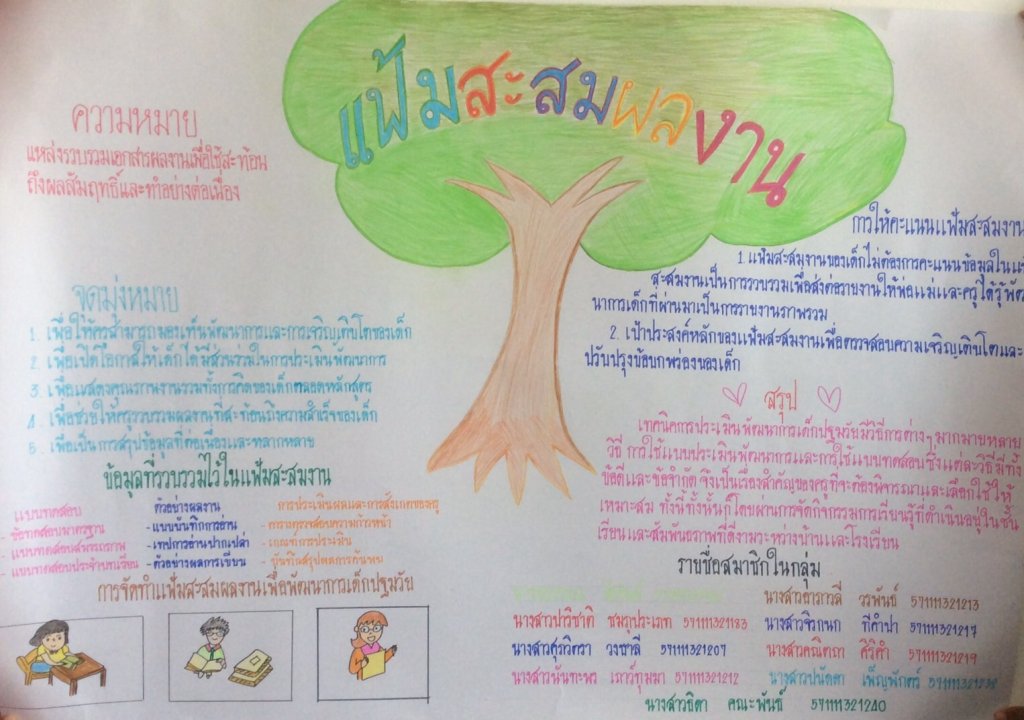 แฟ้มสะสมผลงาน
ความหมาย
แหล่งรวบรวมเอกสารผลงานเพื่อใช้สะท้อน
ถึงผลสัมฤทธิ์และทำอย่างต่อเนื่อง
จุดมุ่งหมาย
1. เพื่อให้ครูสามารถมองเห็นพัฒนาการและการเจริญเติบโตของเด็ก
2. เพื่อเปิดโอกาสให้เด็กได้มีส่วนร่วมในการประเมินพัฒนาการ
3. เพื่อแสดงคุณภาพงานรวมทั้งการคิดของเด็กตลอดหลักสูตร
4. เพื่อช่วยให้ครูรวบรวมผลงานที่สะท้อนถึงความสำเร็จของเด็ก
5. เพื่อเป็นการสรุปข้อมูลที่ต่อเนื่องและหลากหลาย
ข้อมูลที่รวบรวมไว้ในแฟ้มสะสมงาน
แบบทดสอบ
- ข้อทดสอบมาตรฐาน
- แบบทดสอบสมรรถภาพ
- แบบทดสอบประจำบทเรียน
ตัวอย่างผลงาน
- แบบบันทึกการอ่าน
- เทปการอ่านปากเปล่า
- ตัวอย่างผลการเขียน
การประเมินผลและการสังเกตของครู
- การตรวจสอบความก้าวหน้า
- เกณฑ์การประเมิน
- บันทึกสรุปผลการค้นพบ
การจัดทำแฟ้มสะสมผลงานเพื่อพัฒนาการเด็กปฐมวัย
การให้คะแนนแฟ้มสะสมงาน
1. แฟ้มสะสมงานของเด็กไม่ต้องการคะแนนข้อมูลในแ
สะสมงานเป็นการรวบรวมเพื่อส่งต่อรายงานให้พ่อแม่และครูได้รู้พัฒ
นาการเด็กที่ผ่านมาเป็นการรายงานภาพรวม
2. เป้าประสงค์หลักของแฟ้มสะสมงานเพื่อตรวจสอบความเจริญเติบโตและ
ปรับปรุงข้อบกพร่องของเด็ก
สรุป
เทคนิคการประเมินพัฒนาการเด็กปฐมวัยมีวิธีการต่างๆ มากมายหลาย
วิธี การใช้แบบประเมินพัฒนาการและการใช้แบบทดสอบซึ่งแต่ละวิธีมีทั้ง
ข้อดีและข้อจำกัด จึงเป็นเรื่องสำคัญของครูที่จะต้องพิจารณาและเลือกใช้ให้
เหมาะสม ทั้งนี้ทั้งนั้นก็โดยผ่านการจัดกิจกรรมการเรียนรู้ที่ดำเนินอยู่ในชั้น
เรียนและสัมพันธภาพที่ดีงามระหว่างบ้านและโรงเรียน
รายชื่อสมาชิกในกลุ่ม
นางสาวธารกวลี วรพันธ์ 571111321213
นางสาวปาริชาติ ชมภูประเภท 571111321183
นางสาวจิรกนก ทีคำปา 571111321217
นางสาวศุรภิตรา วงชาลี 571111321207
นางสาวคณิตถา ศิริคำ 571111321219
นางสาวนันทะพร เถาว์ทุมมา 571111321212
นางสาวปนัดดา เพ็ญพักตร์
นางสาวธิดา คณะพันธ์ 571111321240